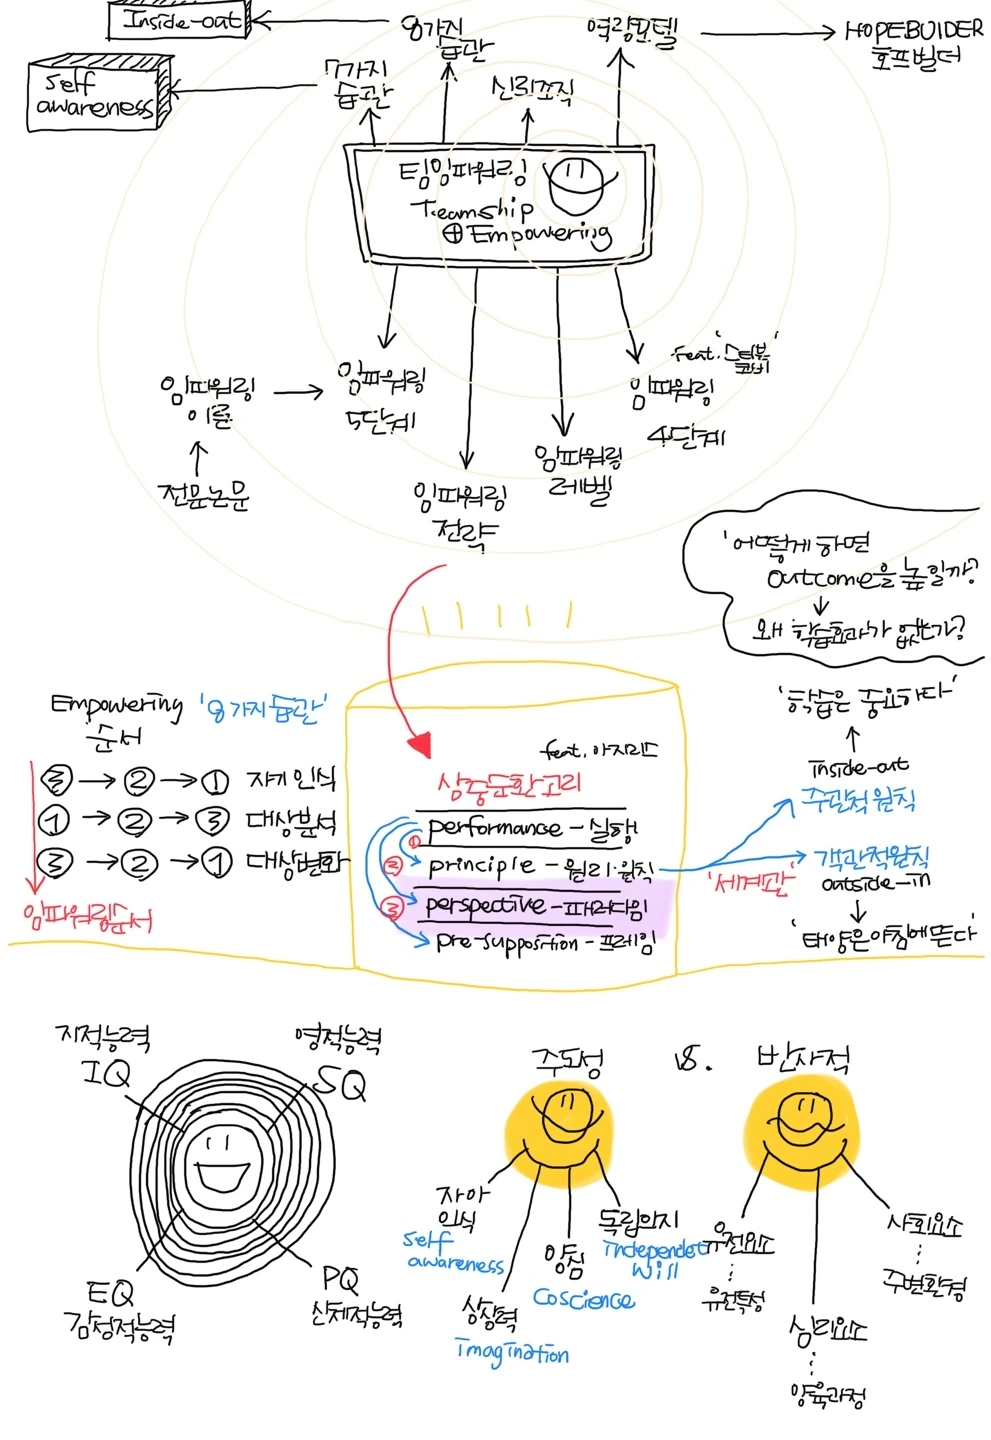 Inside-out
8가지
습관
역량모델
HOPEBUIDER
호프빌더
Self
awareness
7가지
습관
신뢰조직
팀임파워링
Teamship
⊕ Empowering
임파워링
이론
전문논문
임파워링
5단계
임파워링
전략
임파워링
레벨
feat. '스티븐
코비'
임파워링
4단계
'어떻게 하면
outcome을 높일까?
왜 학습효과가 없는가?
Empowering '8가지 습관'
순서
③ → ② → ① 자기인식
① → ② → ③ 대상분석
③ → ② → ① 대상변화
임파워링순서
feat. 아지리스
삼중순환고리
performance - 실행
① principle - 원리·원칙
② perspective - 패러다임
③ pre-supposition - 프레임
'학습은 중요하다'
inside-out
주관적 원칙
'세계관'
객관적원칙
outside-in
'태양은 아침에 뜬다'
지적능력
IQ
영적능력
SQ
EQ
감정적능력
PQ
신체적능력
주도성 vs. 반사적
자아
인식
Self
awareness
상상력
imagination
양심
Coscience
독립의지
independet
will
유전요소
유전특성
심리요소
양육과정
사회요소
주변환경